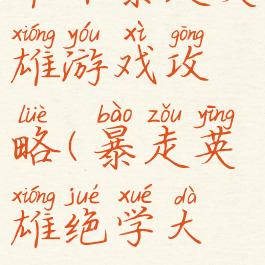 xióng yóu xì gōng
雄游戏攻
lüè bào zǒu yīng
略(暴走英
xióng jué xué dà
雄绝学大